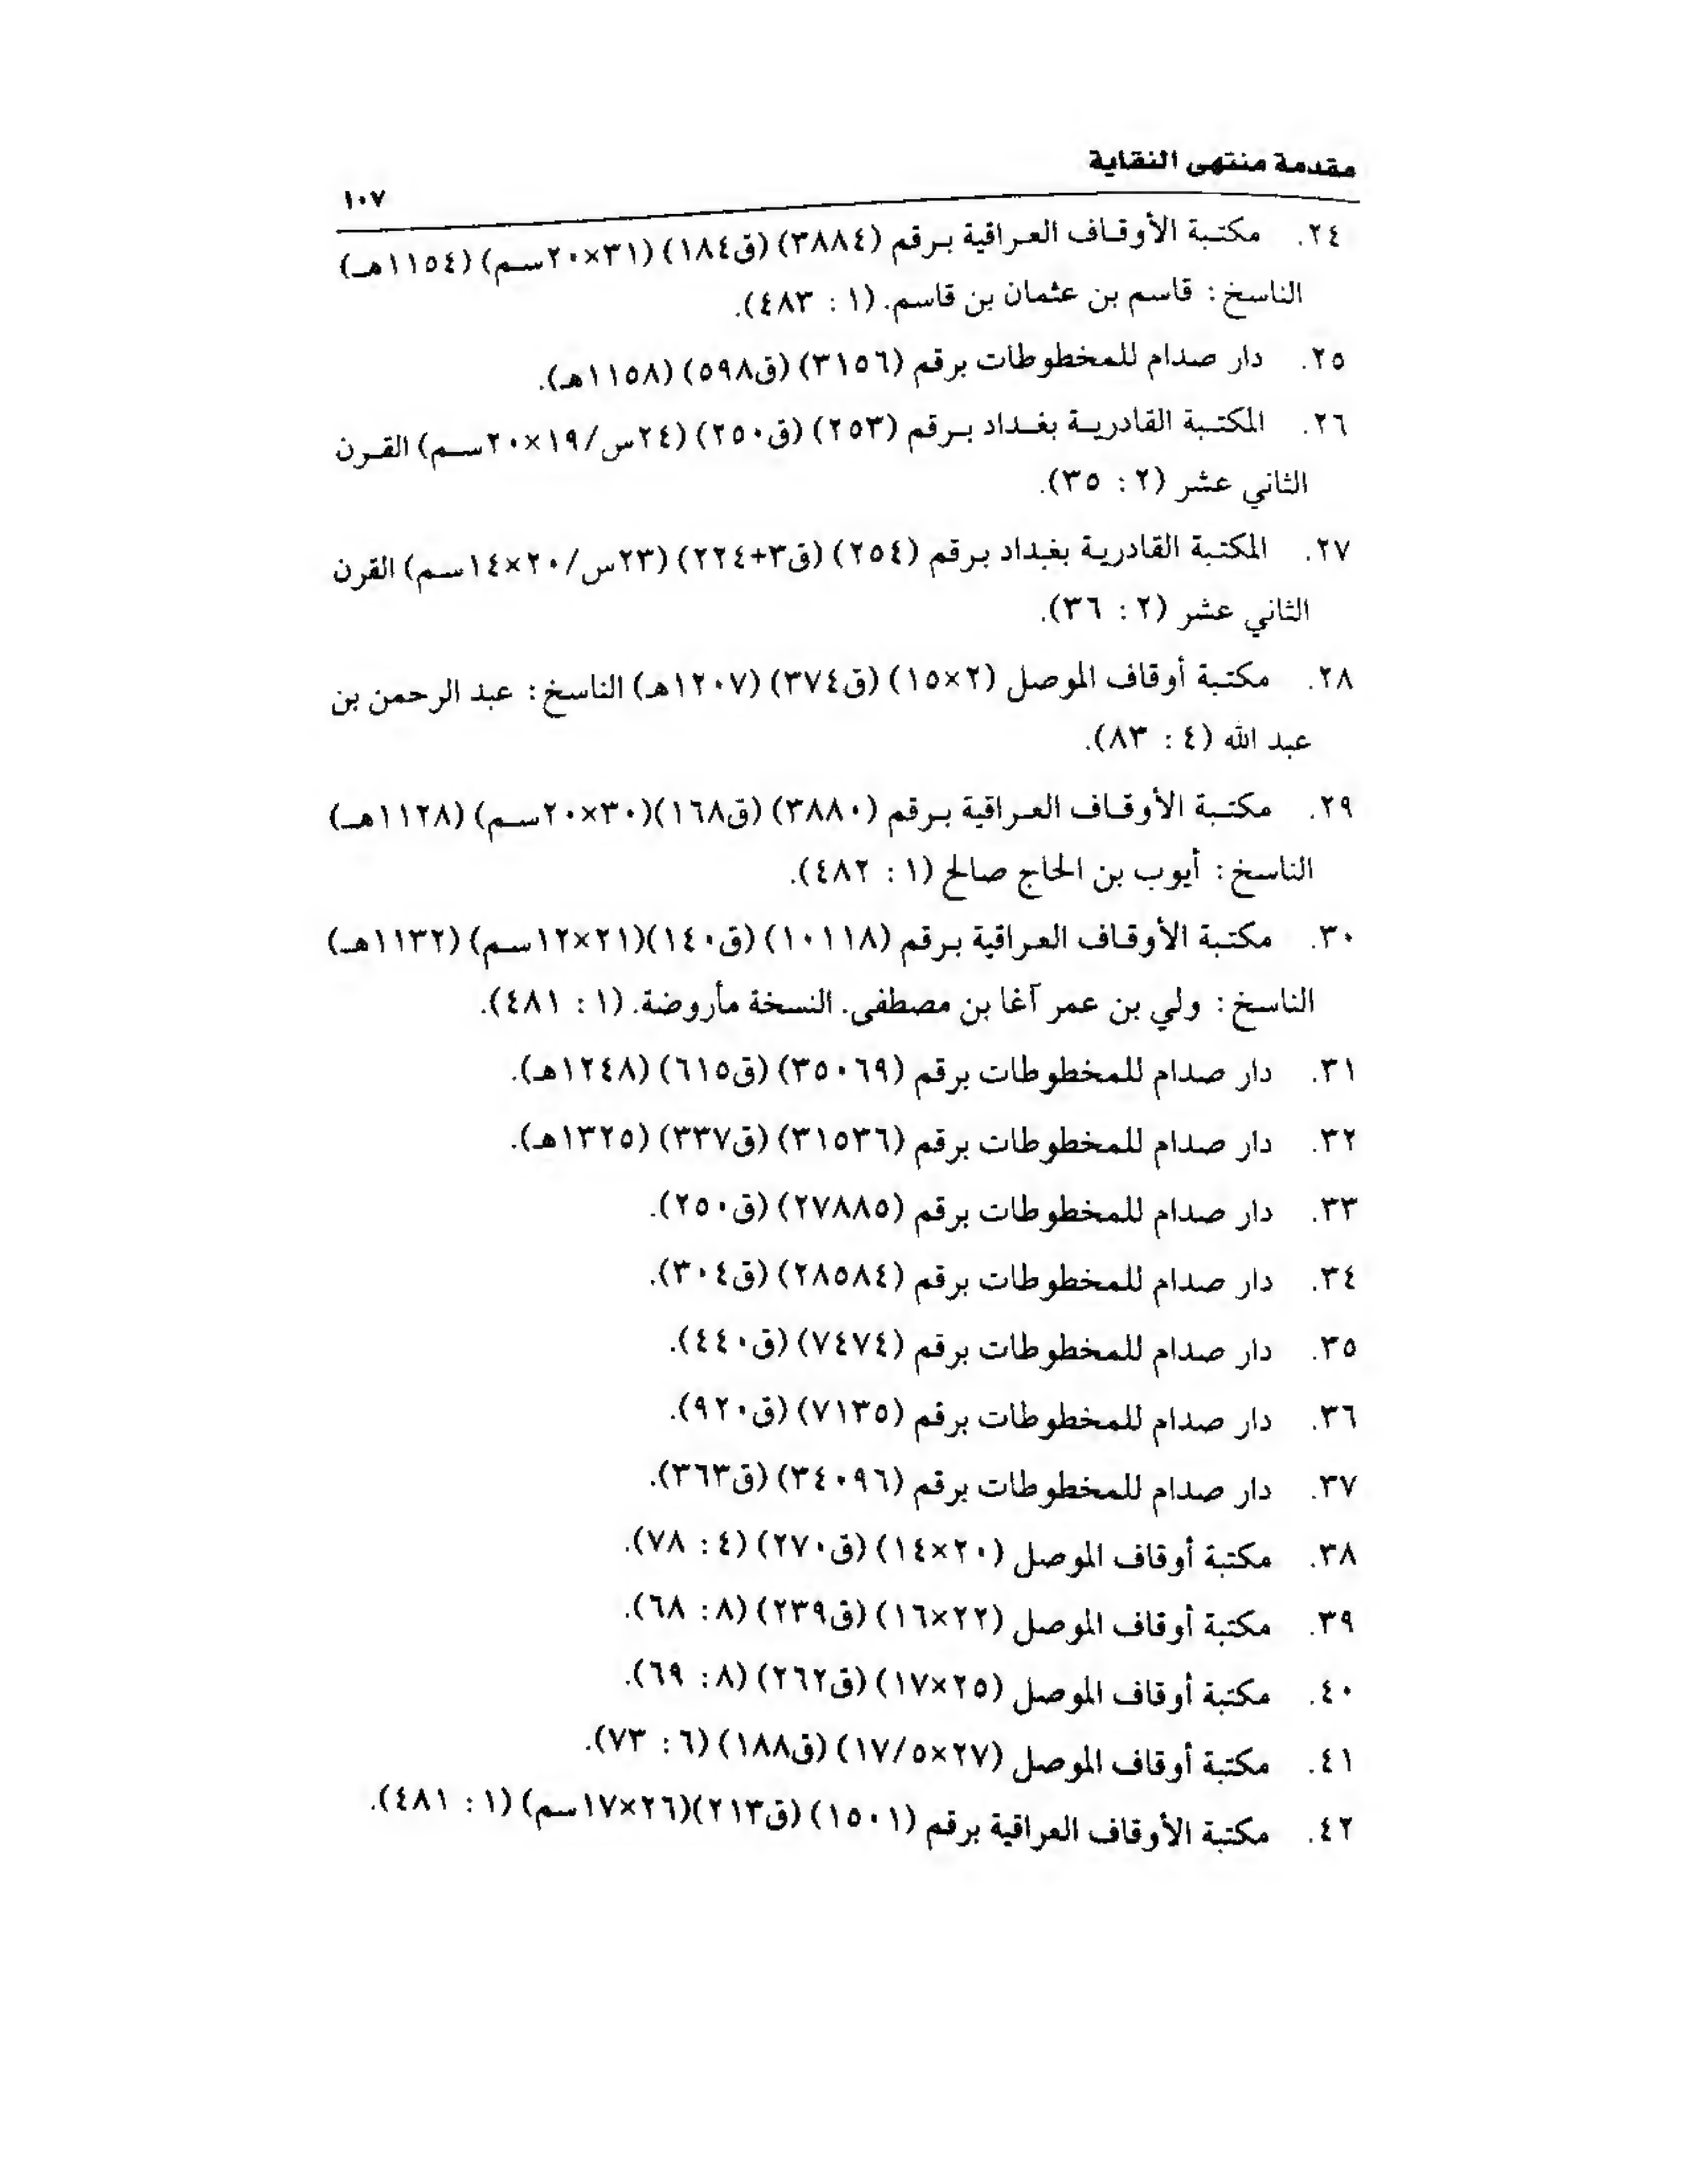 مقدمة منتهى النقاية
١٠٧
٢٤. مكتبة الأوقاف العراقية برقم (٣٨٨٤) (ق١٨٤) (٣١×٢٠سم) (١١٥٤هـ)
الناسخ: قاسم بن عثمان بن قاسم. (١ : ٤٨٣).
٢٥. دار صدام للمخطوطات برقم (٣١٥٦) (ق٥٩٨) (١١٥٨هـ).
٢٦. المكتبة القادرية بغداد برقم (٢٥٣) (ق٢٥٠) (٢٤س/١٩×٢٠سم) القرن
الثاني عشر (٢ : ٣٥).
٢٧. المكتبة القادرية بغداد برقم (٢٥٤) (ق٣+٢٢٤) (٢٣س/٢٠×١٤سم) القرن
الثاني عشر (٢ : ٣٦).
٢٨. مكتبة أوقاف الموصل (٢×١٥) (ق٣٧٤) (١٢٠٧هـ) الناسخ: عبد الرحمن بن
عبد الله (٤ : ٨٣).
٢٩. مكتبة الأوقاف العراقية برقم (٣٨٨٠) (ق١٦٨)(٣٠×٢٠سم) (١١٢٨هـ)
الناسخ: أيوب بن الحاج صالح (١ : ٤٨٢).
٣٠. مكتبة الأوقاف العراقية برقم (١٠١١٨) (ق١٤٠)(٢١×١٢سم) (١١٣٢هـ)
الناسخ: ولي بن عمر آغا بن مصطفى. النسخة مأروضة. (١ : ٤٨١).
٣١. دار صدام للمخطوطات برقم (٣٥٠٦٩) (ق٦١٥) (١٢٤٨هـ).
٣٢. دار صدام للمخطوطات برقم (٣١٥٣٦) (ق٣٣٧) (١٣٢٥هـ).
٣٣. دار صدام للمخطوطات برقم (٢٧٨٨٥) (ق٢٥٠).
٣٤. دار صدام للمخطوطات برقم (٢٨٥٨٤) (ق٣٠٤).
٣٥. دار صدام للمخطوطات برقم (٧٤٧٤) (ق٤٤٠).
٣٦. دار صدام للمخطوطات برقم (٧١٣٥) (ق٩٢٠).
٣٧. دار صدام للمخطوطات برقم (٣٤٠٩٦) (ق٣٦٣).
٣٨. مكتبة أوقاف الموصل (٢٠×١٤) (ق٢٧٠) (٤: ٧٨).
٣٩. مكتبة أوقاف الموصل (٢٢×١٦) (ق٢٣٩) (٨: ٦٨).
٤٠. مكتبة أوقاف الموصل (٢٥×١٧) (ق٢٦٢) (٨: ٦٩).
٤١. مكتبة أوقاف الموصل (٢٧×١٧/٥) (ق١٨٨) (٦ : ٧٣).
٤٢. مكتبة الأوقاف العراقية برقم (١٥٠١) (ق٢١٣)(٢٦×١٧سم) (١ : ٤٨١).